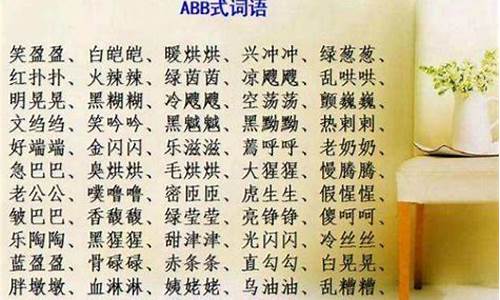 ABB式词语
笑盈盈、白皑皑、暖烘烘、兴冲冲、绿葱葱、
红扑扑、火辣辣、绿茵茵、凉飕飕、乱哄哄、
明晃晃、黑糊糊、冷飕飕、空荡荡、颤巍巍、
文绉绉、笑吟吟、黑魆魆、黑黝黝、热刺刺、
好端端、金闪闪、乐滋滋、蔫呼呼、老奶奶、
急巴巴、臭烘烘、毛烘烘、大猩猩、慢腾腾、
老公公、噗噜噜、密匝匝、虎生生、假惺惺、
皱巴巴、香馥馥、绿莹莹、亮铮铮、傻呵呵、
乐陶陶、黑猩猩、甜津津、光闪闪、冷丝丝、
蓝盈盈、骨碌碌、赤条条、直勾勾、白晃晃、
胖墩墩、血淋淋、姨姥姥、乌油油、乱糟糟、